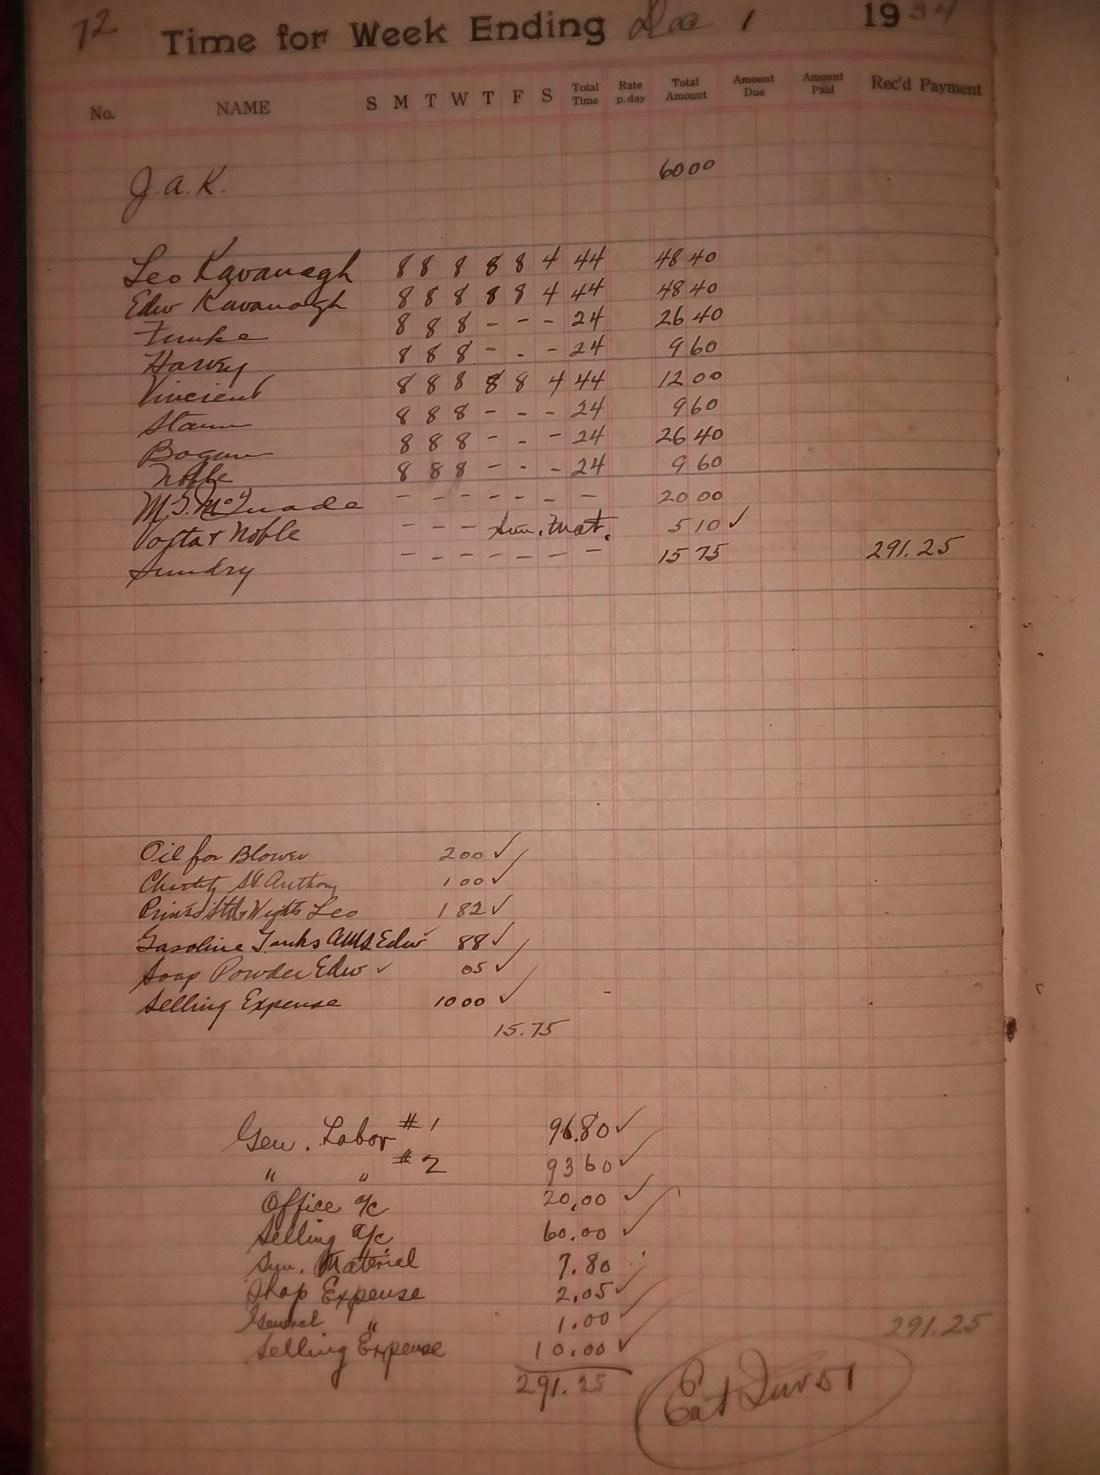 72 Time for Week Ending Dec 1 1934
No. NAME S M T W T F S Total Time Rate p.day Total Amount Amount Due Amount Paid Rec'd Payment
J.A.K. 60 00
Leo Kavanagh 8 8 8 8 8 4 44 48 40
Edw Kavanagh 8 8 8 8 8 4 44 48 40
Funke 8 8 8 - - - 24 26 40
Harvey 8 8 8 - - - 24 9 60
Vincient 8 8 8 8 8 4 44 12 00
8 8 8 - - - 24 9 60
8 8 8 - - - 24 26 40
Noble 8 8 8 - - - 24 9 60
M.G. McQuade - - - - - - - 20 00
Noble - - - Mat. 5 10 ✓
Sundry - - - - - - - 15 75 291.25
Oil for Blower 2 00 ✓
St Anthony 1 00 ✓
Leo 1 82 ✓
Gasoline Edw 88 ✓
Soap Powder Edw ✓ 05 ✓
Selling Expense 10 00 ✓
15.75
Gen. Labor #1 96.80 ✓
" " #2 93 60 ✓
Office a/c 20.00 ✓
Selling a/c 60.00 ✓
Material 7.80
Shop Expense 2.05 ✓
General " 1.00 ✓
Selling Expense 10.00 ✓
291.25
291.25